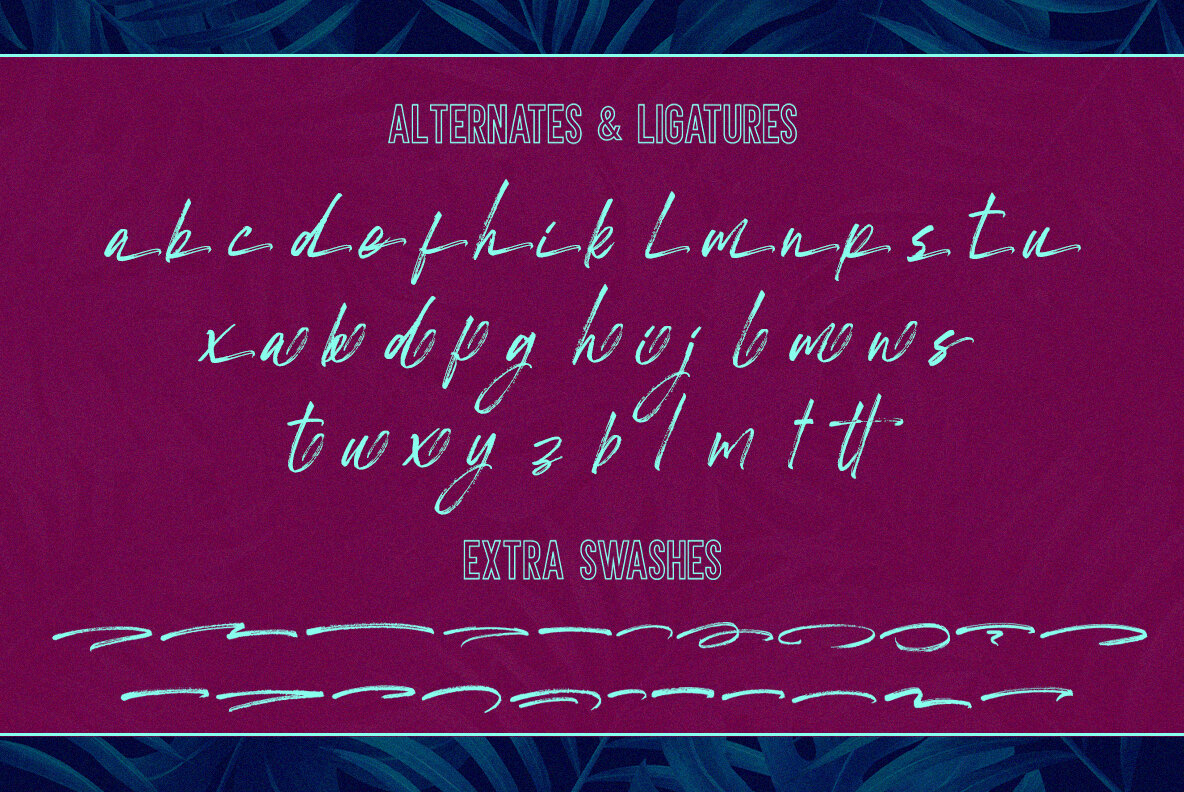 ALTERNATES & LIGATURES
a b c d e f h i k l m n p s t u
x a b d p g h i j l m n s
t u x y z b l m t tt
EXTRA SWASHES